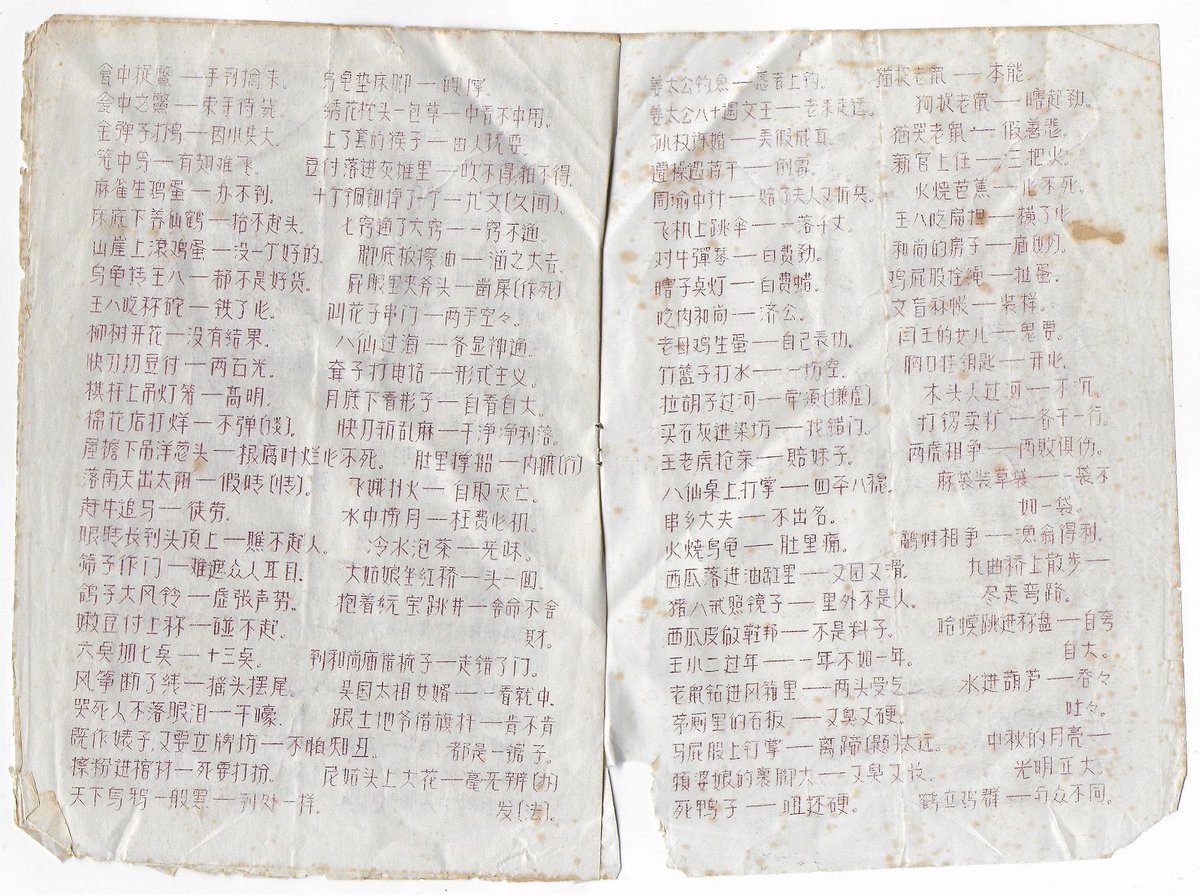 瓮中捉鳖——手到擒来。
瓮中之鳖——束手待毙
金弹子打鸟——因小失大
笼中鸟——有翅难飞。
麻雀生鸡蛋——办不到。
床底下养仙鹤——抬不起头。
山崖上滚鸡蛋——没一个好的。
乌龟找王八——都不是好货。
王八吃秤砣——铁了心。
柳树开花——没有结果。
快刀切豆付——两石光。
棋杆上吊灯笼——高明。
棉花店打烊——不弹(谈)。
屋檐下吊洋葱头——根腐叶烂心不死。
落雨天出太阳——假晴(情)。
赶牛追马——徒劳。
眼睛长到头顶上——瞧不起人。
筛子作门——难遮众人耳目。
鸽子大风铃——虚张声势。
嫩豆付上秤——碰不起。
六点加七点——十三点。
风筝断了线——摇头摆尾。
哭死人不落眼泪——干嚎。
既作婊子,又要立牌坊——不怕知丑。
擦粉进棺材——死要打扮。
天下乌鸦一般黑——到处一样。
乌龟垫床脚——硬撑。
绣花枕头一包草——中看不中用。
上了套的猴子——由人玩耍
豆付落进灰堆里——吹不得,拍不得.
十个铜钿掉了一个——九文(久闻)。
七窍通了六窍——一窍不通。
脚底板擦油——溜之大吉。
屁眼里夹斧头——凿屎(作死)
叫花子串门——两手空々。
八仙过海——各显神通。
聋子打电话——形式主义。
月底下看影子——自看自大。
快刀斩乱麻——干净净利落。
肚里撑船——内航(行)
飞蛾扑火——自取灭亡。
水中捞月——枉费心机。
冷水泡茶——无味。
大姑娘坐红轿——头一回。
抱着元宝跳井——舍命不舍
财。
到和尚庙借梳子——走错了门。
吴国太相女婿——一看就中.
跟土地爷借旗杆——肯不肯
都是一锯子。
尼姑头上大花——毫无辫(办)
发(法)。
姜太公钓鱼——愿者上钩。
姜太公八十遇文王——老来走运。
孙权许婚——弄假成真。
曹操遇蒋干——倒霉。
周瑜中计——赔了夫人又折兵。
飞机上跳伞——一落千丈。
对牛弹琴——白费劲。
瞎子点灯——白费蜡。
吃肉和尚——济公。
老母鸡生蛋——自己表功。
竹篮子打水——一场空。
拉胡子过河——牵须(谦虚)。
买石灰进染坊——找错门。
王老虎抢亲——赔妹子。
八仙桌上打掌——四平八稳。
串乡大夫——不出名。
火烧乌龟——肚里痛。
西瓜落进油缸里——又圆又滑。
猪八戒照镜子——里外不是人。
西瓜皮做鞋邦——不是料子。
王小二过年——一年不如一年。
老鼠钻进风箱里——两头受气。
茅厕里的石板——又臭又硬。
马屁股上钉掌——离蹄(题)太远。
懒婆娘的裹脚太——又臭又长。
死鸭子——咀还硬。
猫捉老鼠——本能。
狗捉老鼠——瞎起劲。
猫哭老鼠——假善悲。
新官上任——三把火。
火烧芭蕉——心不死。
王八吃扁担——横了心
和尚的房子——庙(妙)。
鸡屁股拴绳——扯蛋。
文盲看报——装样。
闫王的女儿——鬼耍。
胸口挂钥匙——开心。
木头人过河——不沉。
打锣卖糖——各干一行。
两虎相争——两败俱伤。
麻袋装草袋——一袋不
如一袋。
鹬蚌相争——渔翁得利。
九曲桥上散步——
尽走弯路。
哈蟆跳进秤盘——自夸
自大。
水进葫芦——吞々
吐々。
中秋的月亮——
光明正大。
鹤立鸡群——与众不同。